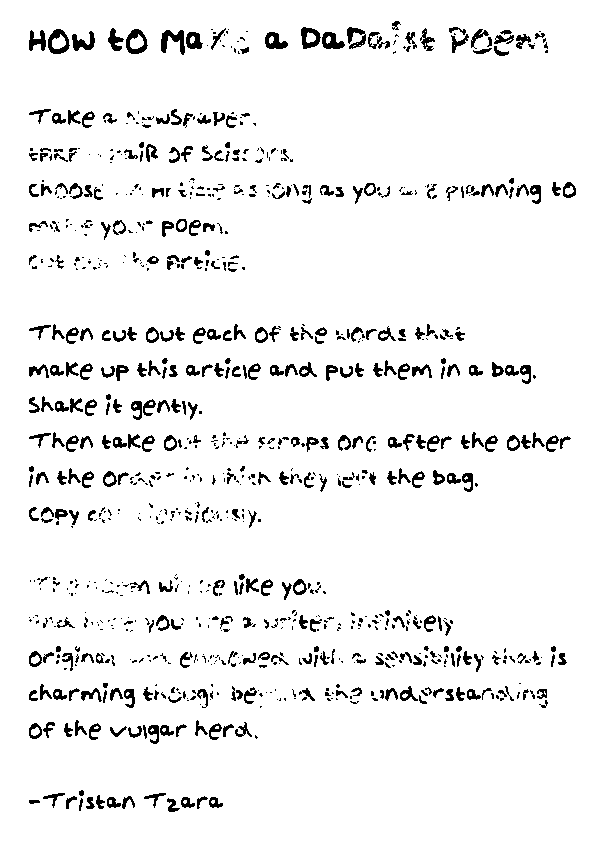 How to Make a Dadaist Poem
Take a Newspaper.
take a pair of Scissors.
Choose an article as long as you are planning to
make your poem.
cut out the article.
Then cut out each of the words that
make up this article and put them in a bag.
Shake it gently.
Then take out the scraps one after the other
in the order in which they left the bag.
Copy conscientiously.
The poem will be like you.
And here you are a writer, infinitely
original and endowed with a sensibility that is
charming though beyond the understanding
of the vulgar herd.
-Tristan Tzara